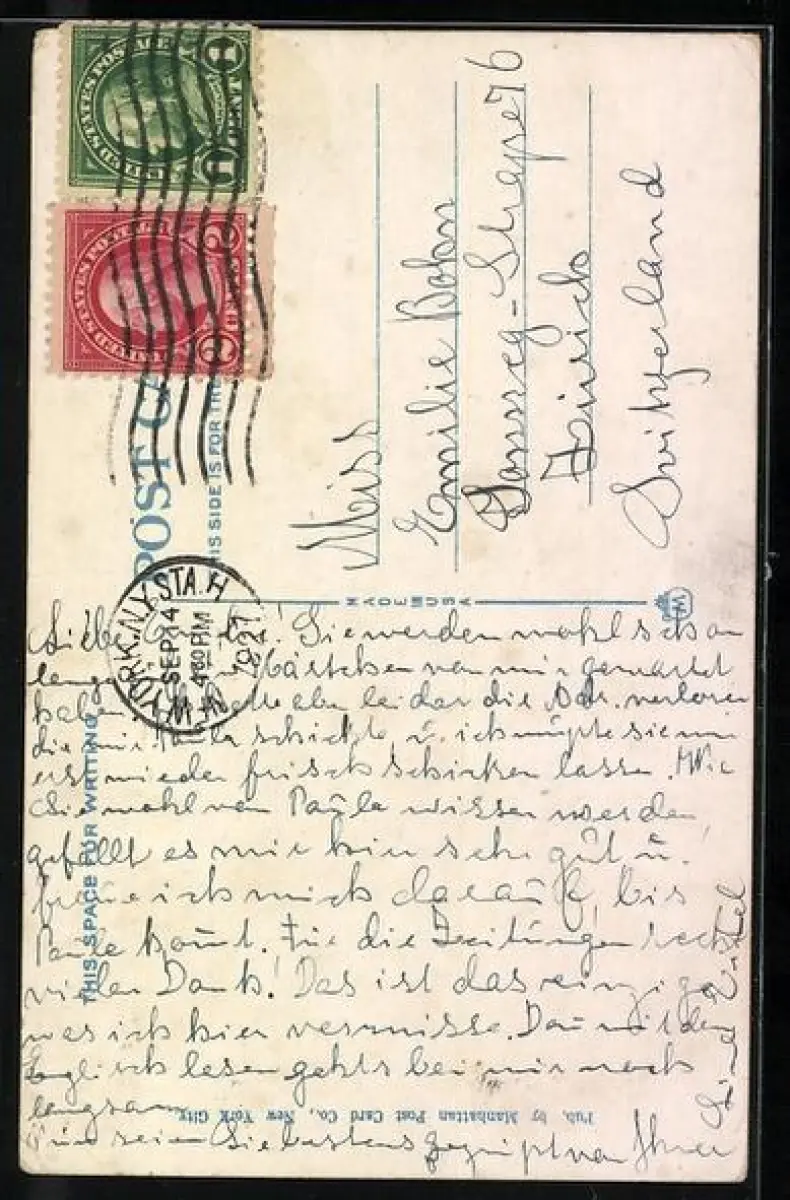 POST CA
THIS SIDE IS FOR THE
UNITED STATES POSTAGE
UNITED STATES POSTAGE
YORK, N.Y. STA. H
SEP 14
430 PM
1927
Miss
Emilie Bohn
Strasse 76
Zürich
Switzerland
MADE IN USA
THIS SPACE FOR WRITING
Liebe ! Sie werden wohl schon
lange Kärtchen von mir gewartet
haben. eben leider die Adr. verloren
die mir Paula schickte u. ich müsste sie mir
erst wieder frisch schicken lassen. Wie
Sie wohl von Paula wissen werden,
gefällt es mir hier sehr gut u.
freue ich mich darauf, bis
Paula komt. Für die Zeitungen recht
vielen Dank! Das ist das einzige
was ich hier vermisse. Den mit dem
Englisch lesen gehts bei mir noch
langsam
seien Sie bestens gegrüsst von Ihrer
Pub. by Manhattan Post Card Co., New York City